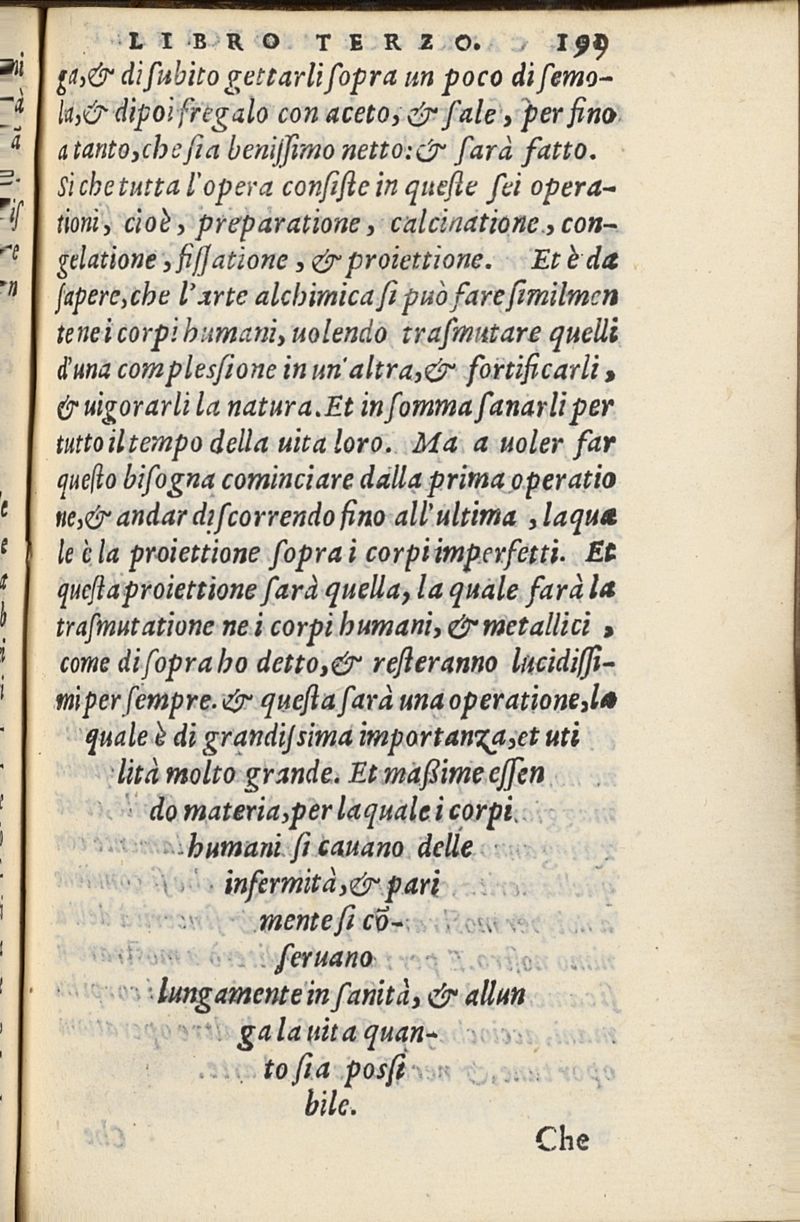 LIBRO TERZO. 199
ga,& di ſubito gettarli ſopra un poco di ſemo-
la,& dipoi fregalo con aceto, & ſale, per fino
a tanto, che ſia beniſſimo netto: & ſarà fatto.
Si che tutta l'opera conſiſte in queſte ſei opera-
tioni, cioè, preparatione, calcinatione, con-
gelatione, fiſſatione, & proiettione. Et è da
ſapere, che l'arte alchimica ſi può fare ſimilmen
te ne i corpi humani, uolendo traſmutare quelli
d'una complesſione in un'altra,& fortificarli,
& uigorarli la natura. Et in ſomma ſanarli per
tutto il tempo della uita loro. Ma a uoler far
queſto biſogna cominciare dalla prima operatio
ne,& andar diſcorrendo fino all'ultima, laqua
le è la proiettione ſopra i corpi imperfetti. Et
queſta proiettione ſarà quella, la quale farà la
traſmutatione ne i corpi humani, & metallici,
come di ſopra ho detto,& reſteranno lucidiſſi-
mi per ſempre. & queſta ſarà una operatione, la
quale è di grandiſsima importanza, et uti
lità molto grande. Et maßime eſſen
do materia, per laquale i corpi
humani ſi cauano delle
infermità,& pari
mente ſi cō-
ſeruano
lungamente in ſanità, & allun
ga la uita quan-
to ſia posſi
bile.
Che